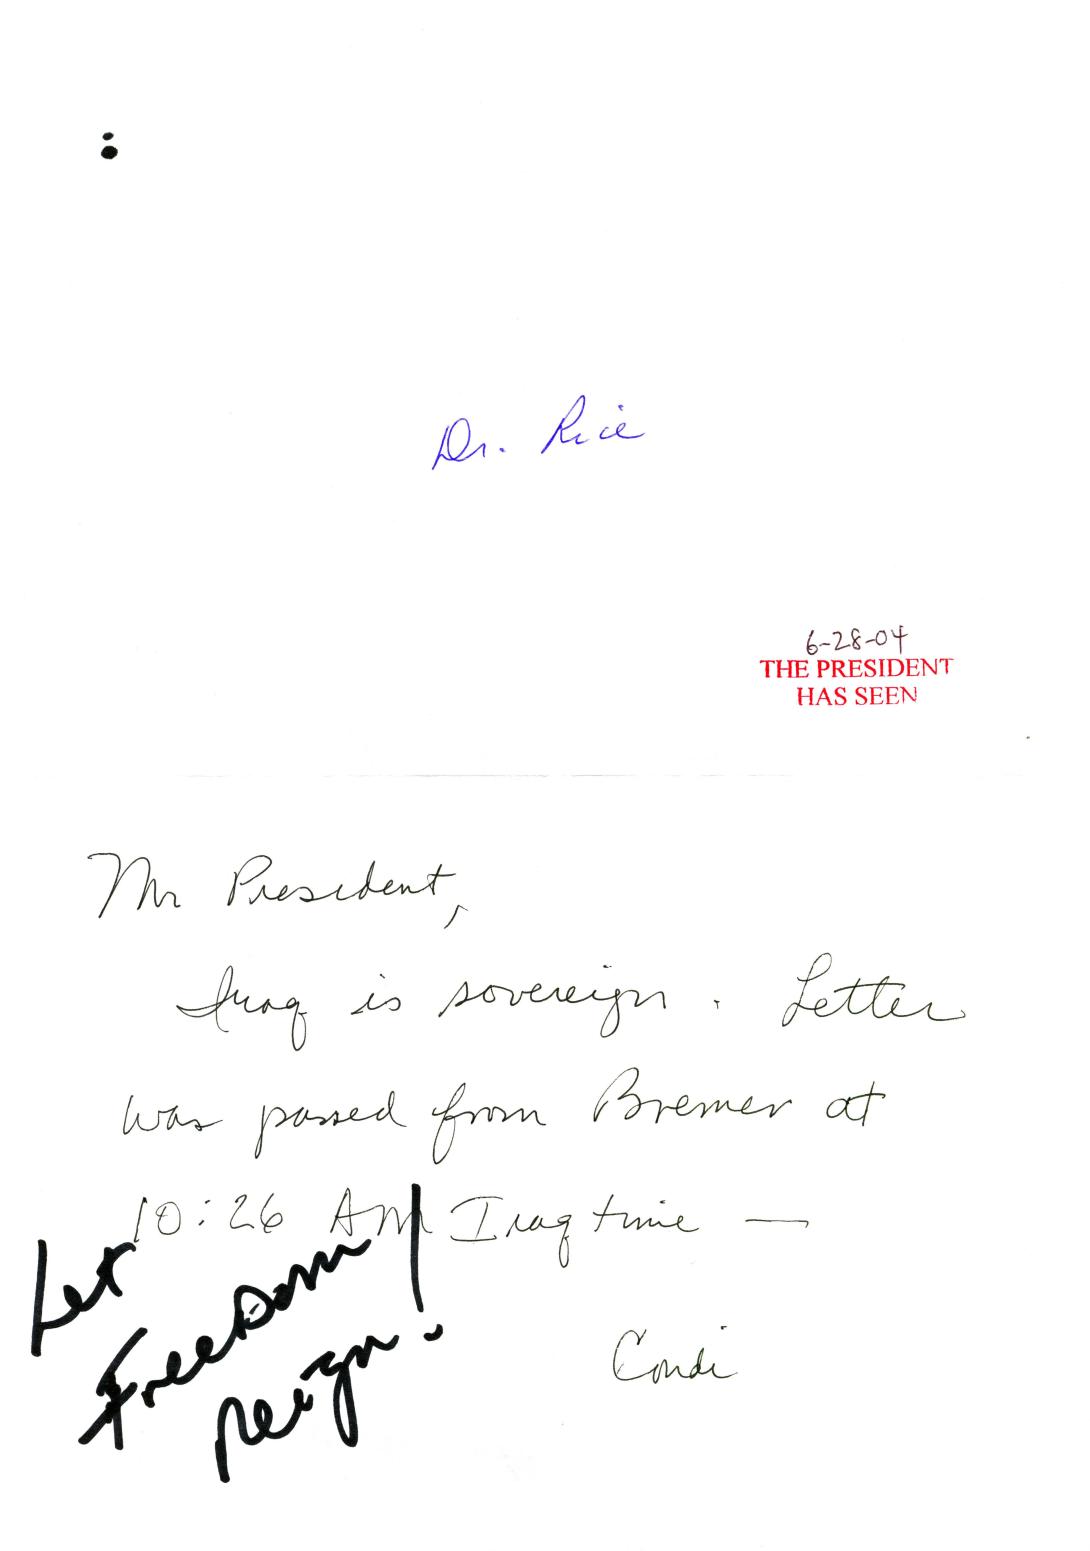 Dr. Rice
6-28-04
THE PRESIDENT
HAS SEEN
Mr President,
Iraq is sovereign. Letter
was passed from Bremer at
10:26 AM Iraq time —
Let
Freedom
Reign!
Condi